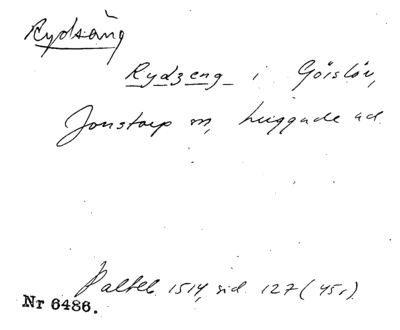 Rydsäng
Rydzeng i Göislöv,
Jonstorp sn, Luggude hd.
Palteb. 1514, sid. 127 (45r)
Nr 6486.